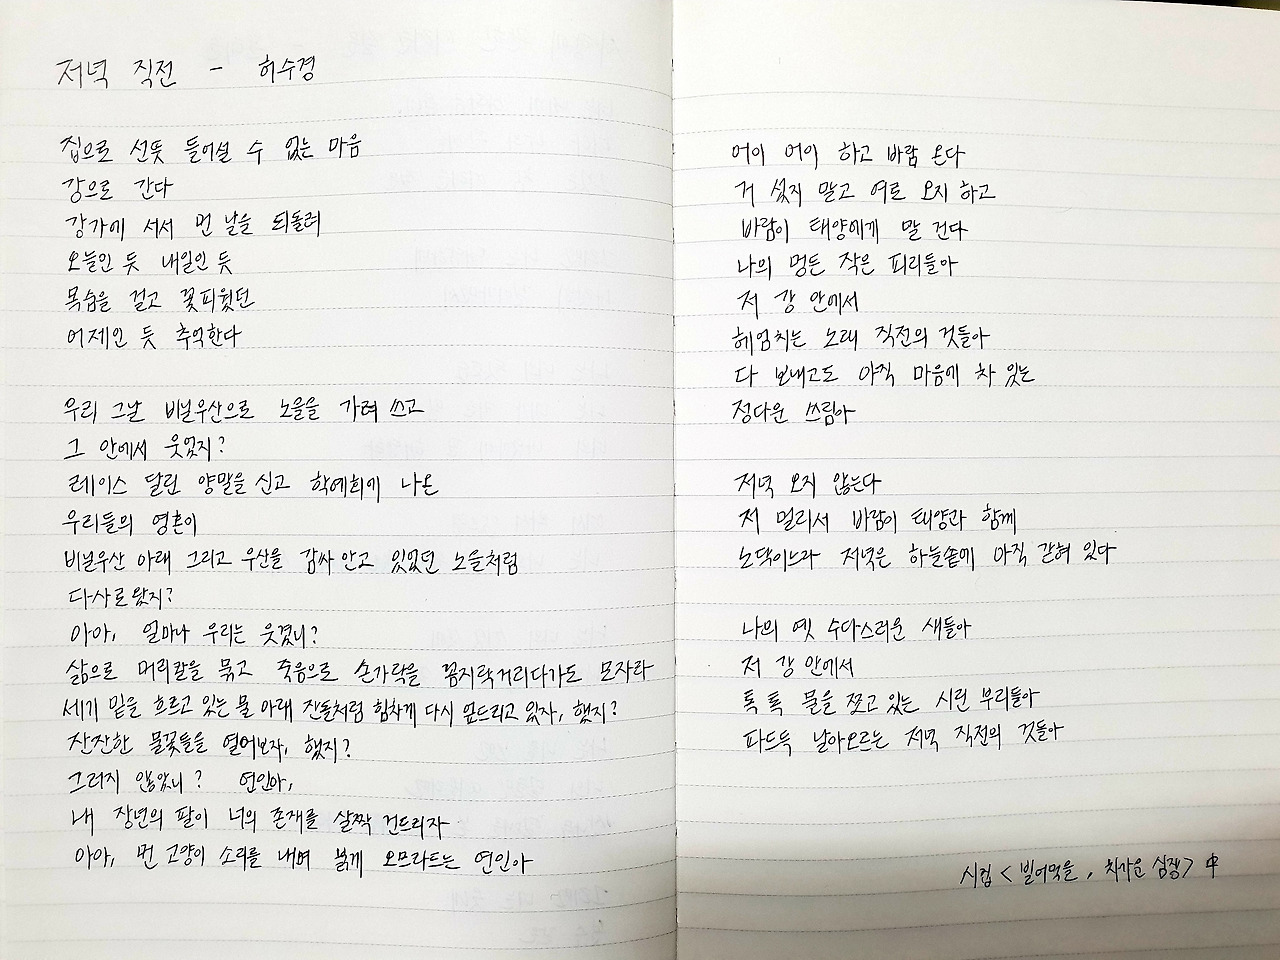 저녁 직전 - 허수경
집으로 선뜻 들어설 수 없는 마음
강으로 간다
강가에 서서 먼 날을 되돌려
오늘인 듯 내일인 듯
목숨을 걸고 꽃피웠던
어제인 듯 추억한다
우리 그날 비닐우산으로 노을을 가려 쓰고
그 안에서 웃었지?
레이스 달린 양말을 신고 학예회에 나온
우리들의 영혼이
비닐우산 아래 그리고 우산을 감싸 안고 있었던 노을처럼
다사로왔지?
아아, 얼마나 우리는 웃겼니?
삶으로 머리칼을 묶고 죽음으로 손가락을 꼼지락거리다가도 모자라
세기 밑을 흐르고 있는 물 아래 잔돌처럼 힘차게 다시 엎드리고 있자, 했지?
잔잔한 물꽃들을 열어보자, 했지?
그러지 않았니? 연인아,
내 장년의 팔이 너의 존재를 살짝 건드리자
아아, 먼 고양이 소리를 내며 붉게 오므라드는 연인아
어이 어이 하고 바람 온다
거 섰지 말고 여로 오지 하고
바람이 태양에게 말 건다
나의 멍든 작은 피리들아
저 강 안에서
헤엄치는 노래 직전의 것들아
다 보내고도 아직 마음에 차 있는
정다운 쓰림아
저녁 오지 않는다
저 멀리서 바람이 태양과 함께
노닥이느라 저녁은 하늘솥에 아직 갇혀 있다
나의 옛 수다스러운 새들아
저 강 안에서
톡 톡 물을 쪼고 있는 시린 부리들아
파드득 날아오르는 저녁 직전의 것들아
시집 < 빌어먹을, 차가운 심장> 中